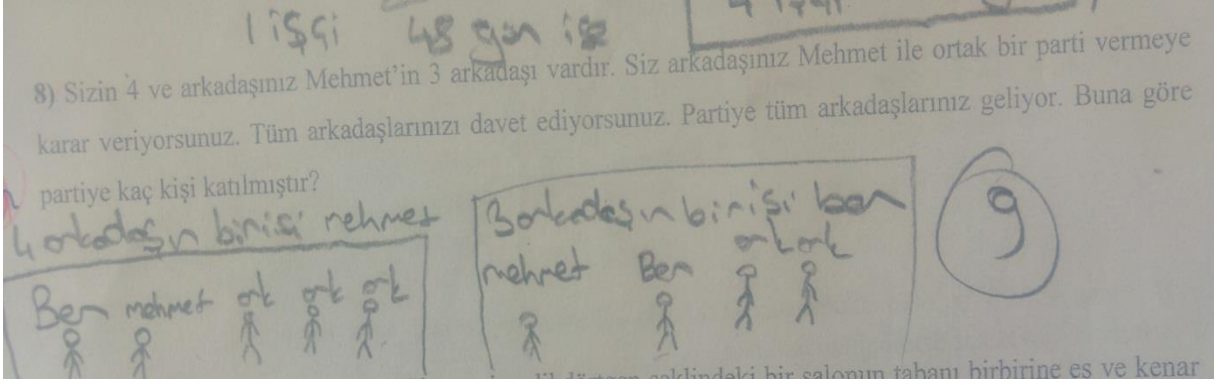 1 işçi 48 gün ise
8) Sizin 4 ve arkadaşınız Mehmet'in 3 arkadaşı vardır. Siz arkadaşınız Mehmet ile ortak bir parti vermeye
karar veriyorsunuz. Tüm arkadaşlarınızı davet ediyorsunuz. Partiye tüm arkadaşlarınız geliyor. Buna göre
partiye kaç kişi katılmıştır?
4 arkadaşın birisi mehmet
Ben mehmet ark ark ark
3 arkadaşın birisi ben
mehmet Ben ark ark
9
şeklindeki bir salonun tabanı birbirine eş ve kenar